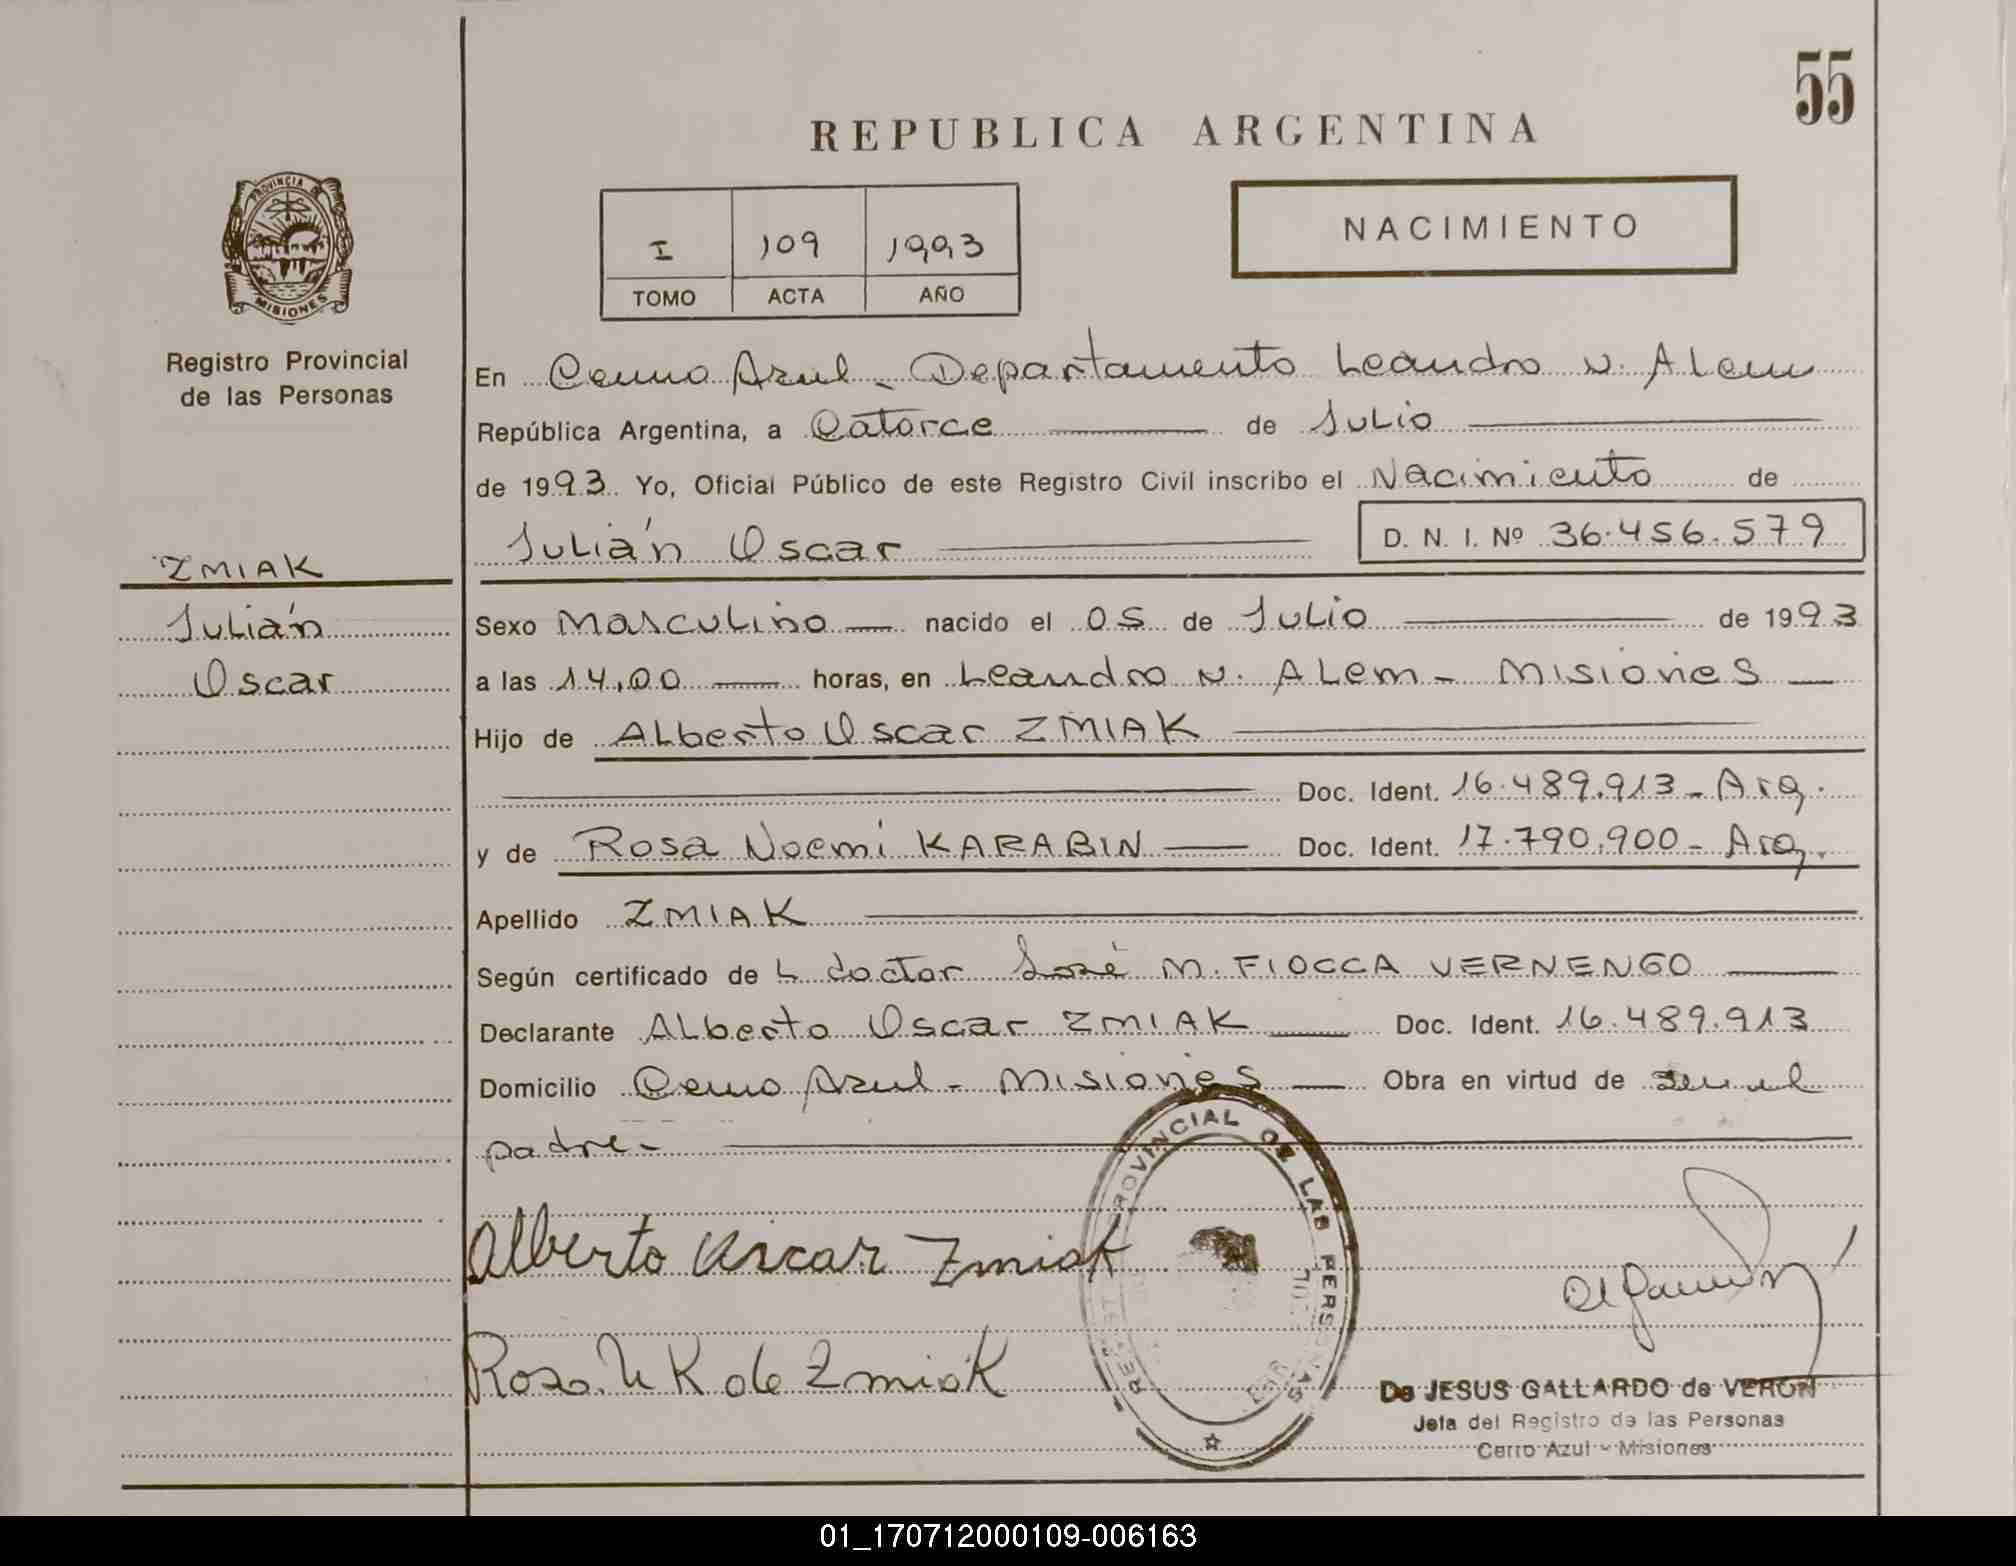 55
REPUBLICA ARGENTINA
PROVINCIA DE
MISIONES
Registro Provincial
de las Personas
I 109 1993
TOMO ACTA AÑO
NACIMIENTO
En Cerro Azul - Departamento Leandro N. Alem
República Argentina, a Catorce de Julio
de 1993 Yo, Oficial Público de este Registro Civil inscribo el Nacimiento de
Julián Oscar D. N. I. Nº 36.456.579
ZMIAK
Julián
Oscar
Sexo Masculino nacido el 05 de Julio de 1993
a las 14,00 horas, en Leandro N. Alem - Misiones
Hijo de Alberto Oscar ZMIAK
Doc. Ident. 16.489.913 - Arg.
y de Rosa Noemí KARABIN Doc. Ident. 17.790.900 - Arg.
Apellido ZMIAK
Según certificado de L doctor José M. FIOCCA VERNENGO
Declarante Alberto Oscar ZMIAK Doc. Ident. 16.489.913
Domicilio Cerro Azul - Misiones Obra en virtud de ser el
padre -
Alberto Oscar Zmiak
Rosa N K de Zmiak
PROVINCIAL DE LAS PERSONAS
De JESUS GALLARDO de VERON
Jefa del Registro de las Personas
Cerro Azul - Misiones
01_170712000109-006163